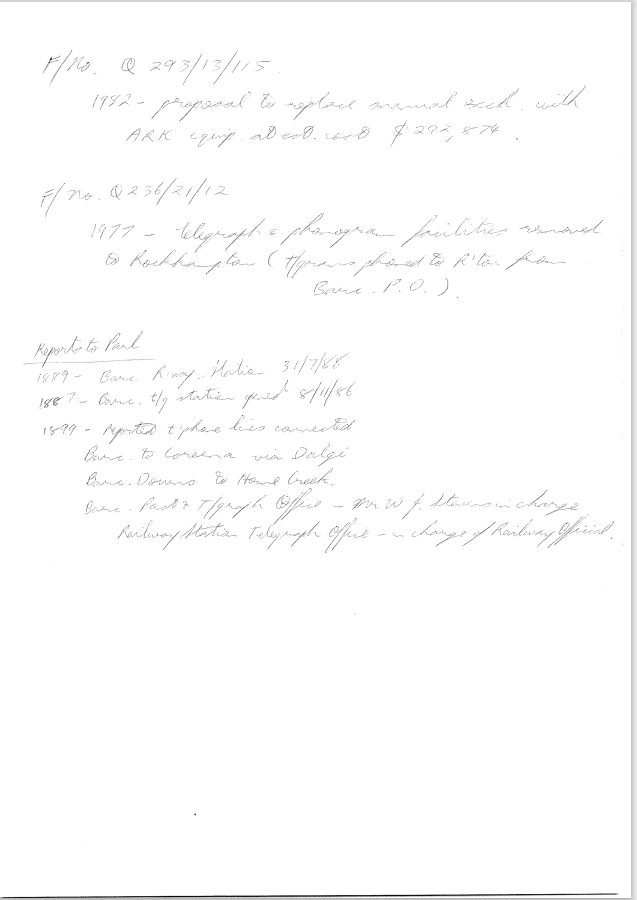 F/No. Q 293/13/115.
1982 - proposal to replace manual exch. with
ARK equip. at est. cost $292,874.
F/no. Q236/21/12
1977 - telegraph & phonogram facilities removed
to Rockhampton (t/grams phoned to R'ton from
Barc. P.O.).
Reports to Parl
1889 - Barc. R-way. Station 31/7/88
1887 - Barc. t/g station opened 8/11/86
1899 - Reported t'phone lines connected
Barc. to Coreena via Dalgi
Barc. Downs to Home Creek.
Barc. Post & T/graph Office - Mr W J. in charge
Railway Station Telegraph Office - in charge of Railway Official.